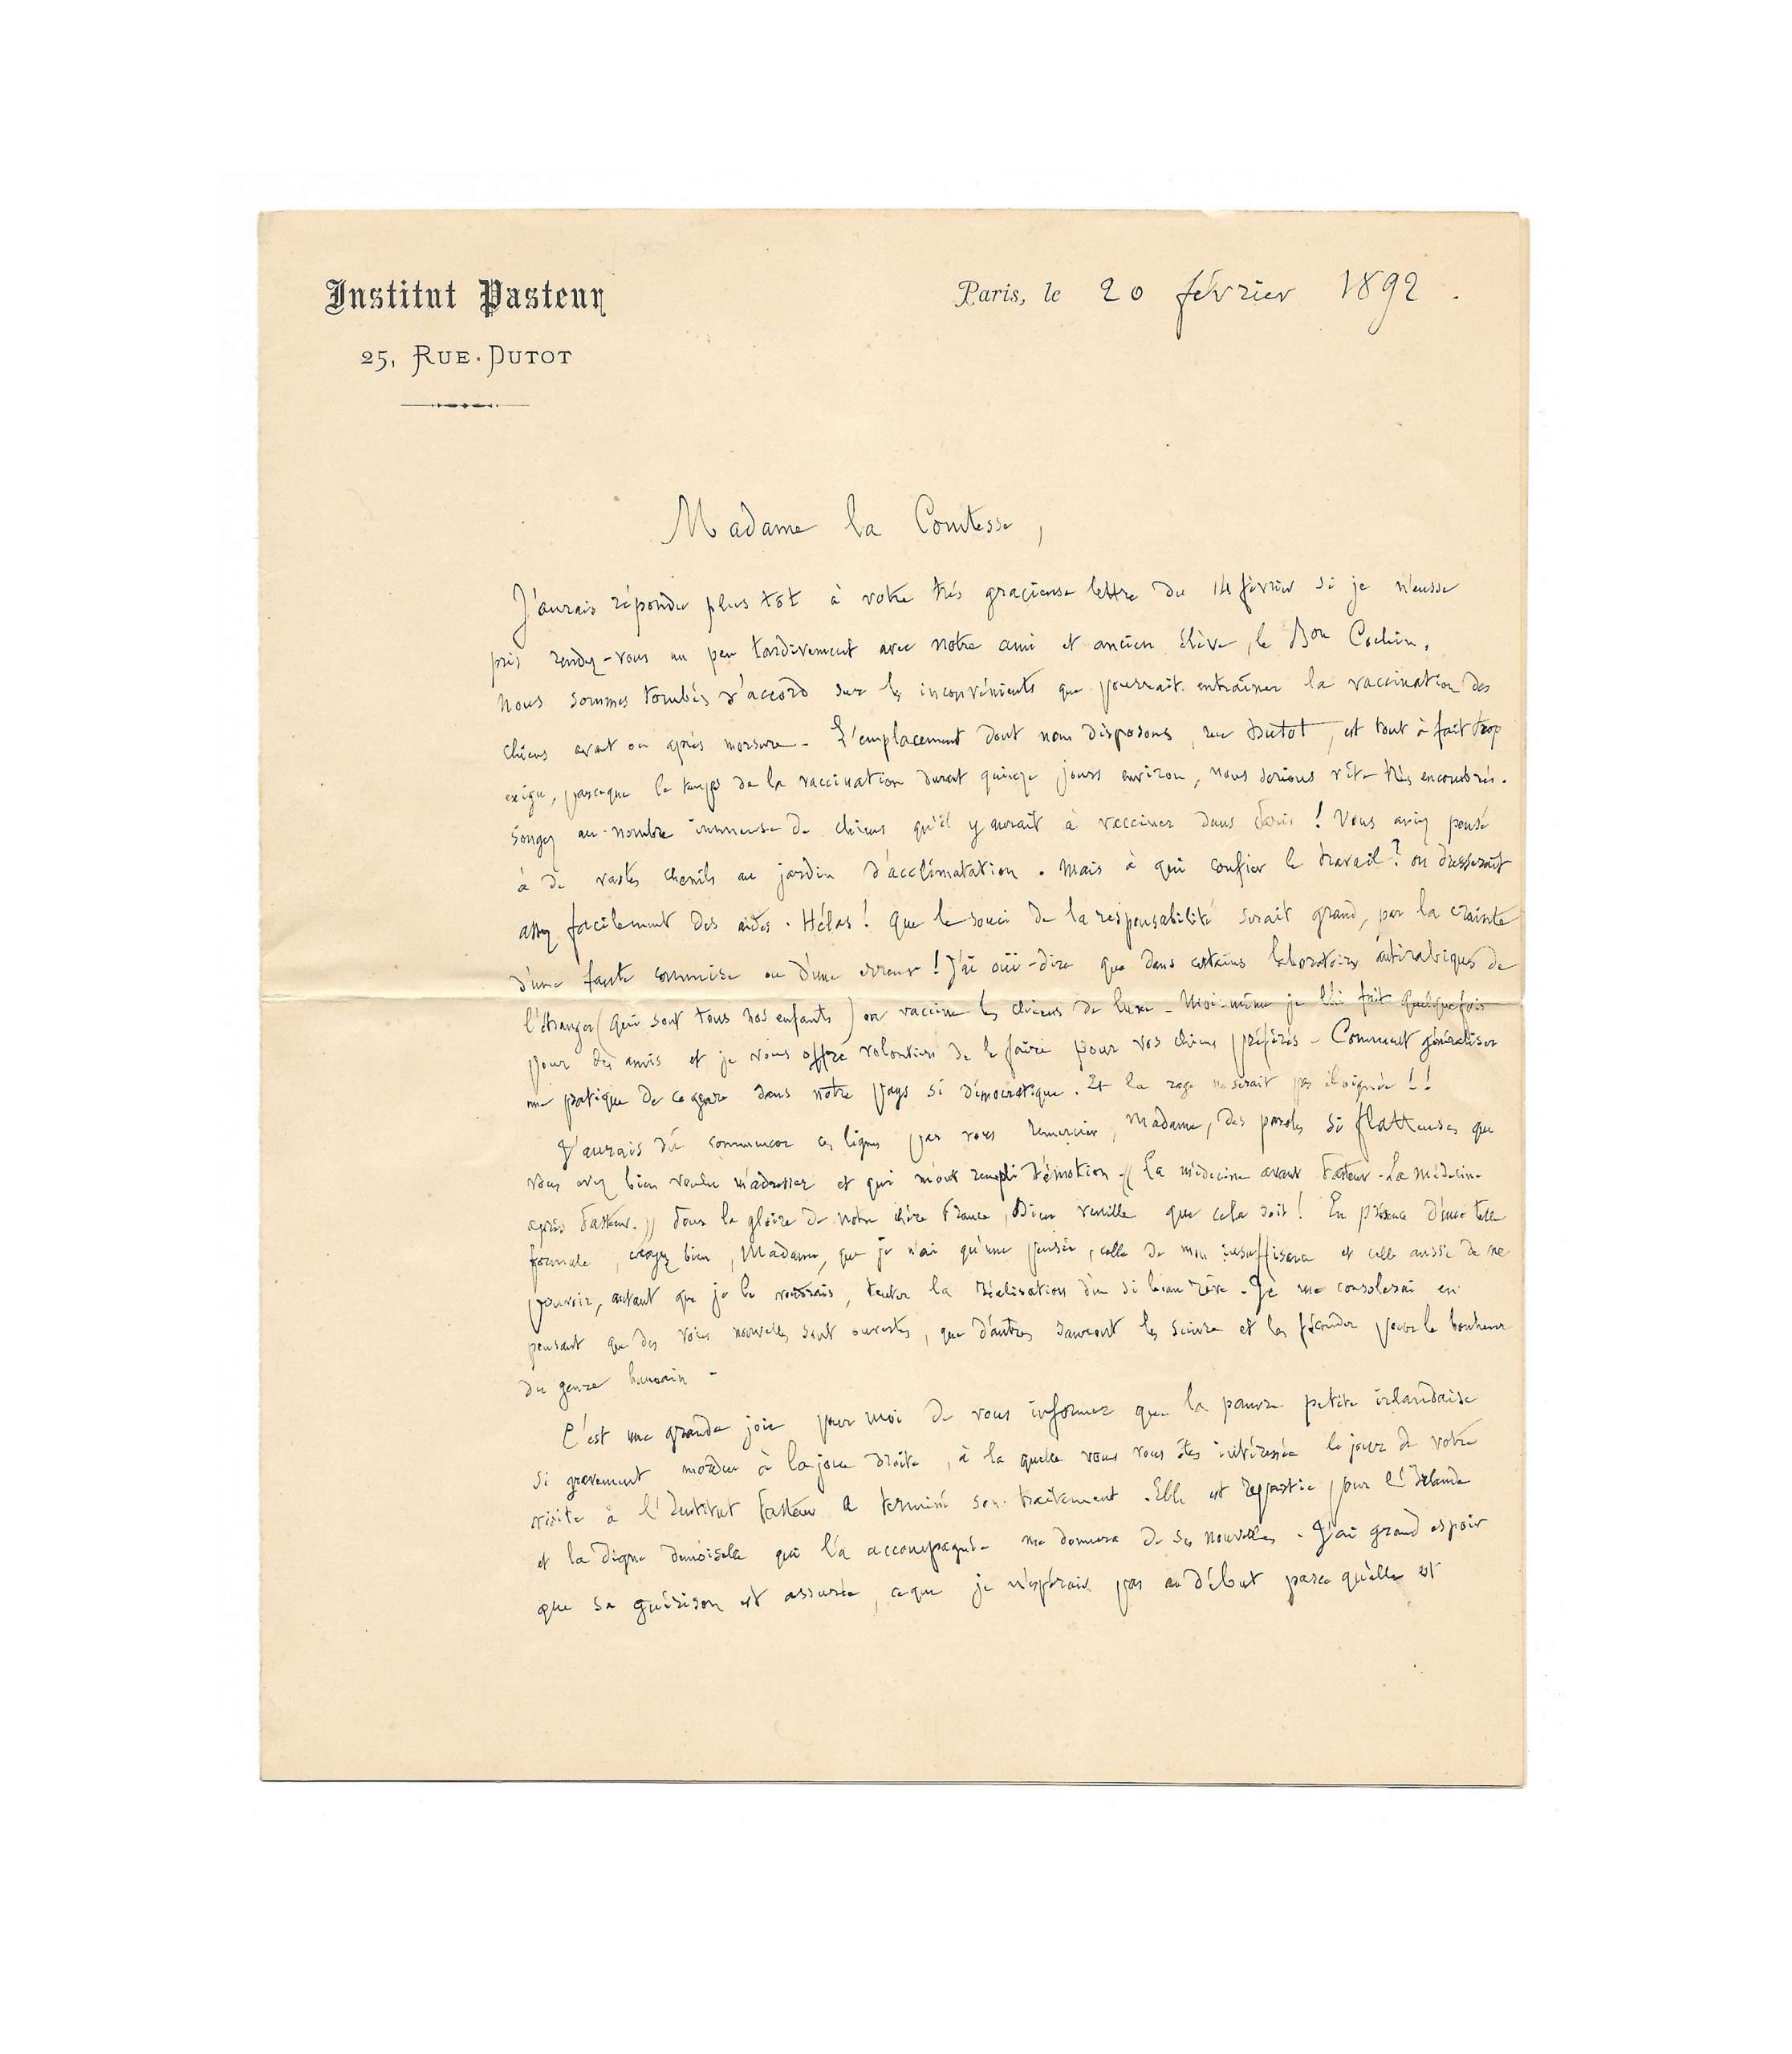 Institut Pasteur
25, RUE DUTOT
Paris, le 20 février 1892.
Madame la Comtesse,
J'aurais répondu plus tôt à votre très gracieuse lettre du 14 février si je n'eusse
pris rendez-vous un peu tardivement avec notre ami et ancien élève, le Bon Cochin.
Nous sommes tombés d'accord sur les inconvénients que pourrait entraîner la vaccination des
chiens avant ou après morsure - L'emplacement dont nous disposons, rue Dutot, est tout à fait trop
exigu, parceque le temps de la vaccination durant quinze jours environ, nous serions vite très encombrés.
Songez au nombre immense de chiens qu'il y aurait à vacciner dans Paris ! Vous aviez pensé
à de vastes chenils au jardin d'acclimatation. Mais à qui confier le travail ? on dresserait
assez facilement des aides. Hélas ! Que le souci de la responsabilité serait grand, par la crainte
d'une faute commise ou d'une erreur ! J'ai ouï-dire que dans certains laboratoires antirabiques de
l'étranger (qui sont tous nos enfants) on vaccine les chiens de luxe - Moi-même je l'ai fait quelquefois
pour des amis et je vous offre volontiers de le faire pour vos chiens préférés - Comment généraliser
une pratique de ce genre dans notre pays si démocratique. Et la rage ne serait pas éloignée !!
J'aurais dû commencer ces lignes par vous remercier, Madame, des paroles si flatteuses que
vous avez bien voulu m'adresser et qui m'ont rempli d'émotion « La médecine avant Pasteur - La médecine
après Pasteur. » Pour la gloire de notre chère France, Dieu veuille que cela soit ! En présence d'une telle
formule, croyez bien, Madame, que je n'ai qu'une pensée, celle de mon insuffisance et celle aussi de ne
pouvoir, autant que je le voudrais, tenter la réalisation d'un si beau rêve - Je me consolerai en
pensant que des voies nouvelles sont ouvertes, que d'autres sauront les suivre et les féconder pour le bonheur
du genre humain -
C'est une grande joie pour moi de vous informer que la pauvre petite irlandaise
si gravement mordue à la joue droite, à la quelle vous vous êtes intéressée le jour de votre
visite à l'Institut Pasteur a terminé son traitement. Elle est repartie pour l'Irlande
et la digne demoiselle qui l'a accompagnée me donnera de ses nouvelles. J'ai grand espoir
que sa guérison est assurée, ce que je n'espérais pas au début parce qu'elle est